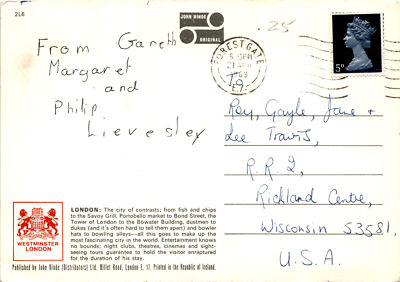 2L6
JOHN HINDE
ORIGINAL
.25
From Gareth
Margaret
and
Philip
Lievesley
FOREST GATE
5 - PM
21 APR
1969
E.7.
5D
To
Ray, Gayle, Jane &
Lee Travis,
R.R 2,
Richland Centre,
Wisconsin 53581,
U.S.A.
WESTMINSTER
LONDON
LONDON: The city of contrasts; from fish and chips
to the Savoy Grill, Portobello market to Bond Street, the
Tower of London to the Bowater Building, dustmen to
dukes (and it's often hard to tell them apart) and bowler
hats to bowling alleys—all this goes to make up the
most fascinating city in the world. Entertainment knows
no bounds; night clubs, theatres, cinemas and sight-
seeing tours guarantee to hold the visitor enraptured
for the duration of his stay.
Published by John Hinde (Distributors) Ltd. Billet Road, London E. 17, Printed in the Republic of Ireland.